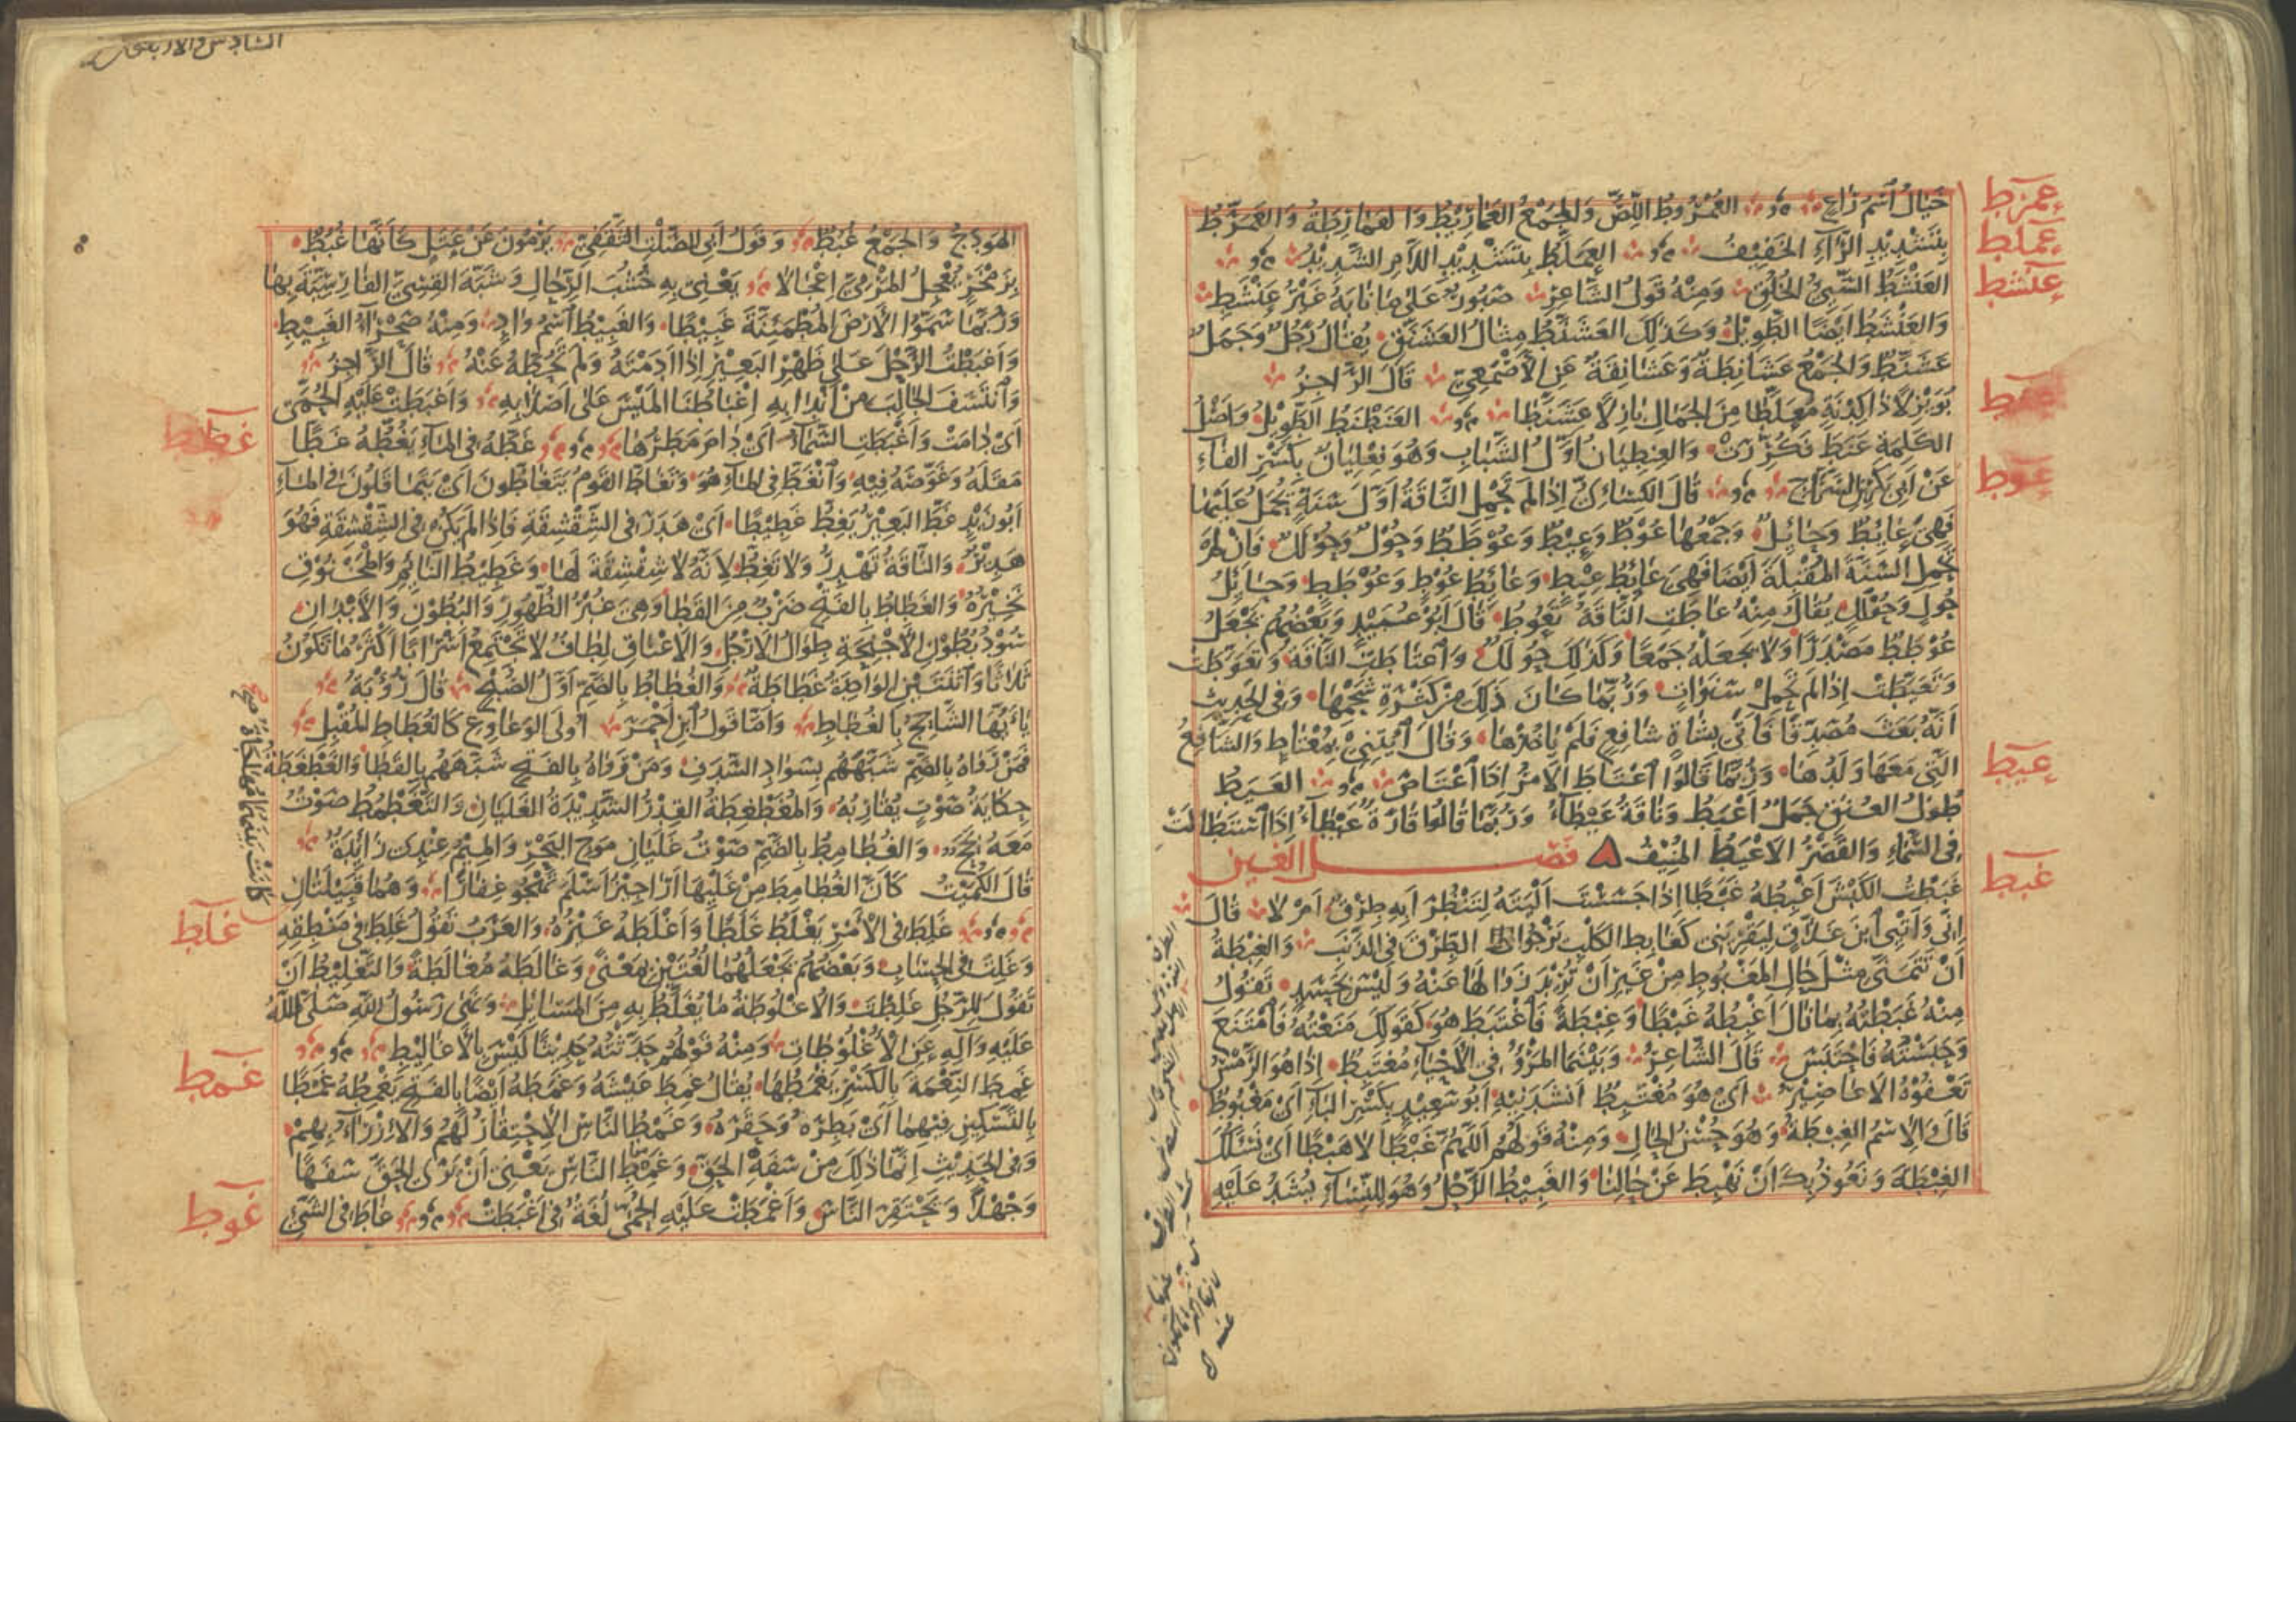 خَيَالُ اَسْمُ رَاعٍ العُمْرُوطُ اللِّصُّ وَالجَمْعُ العَمَارِيْطُ وَالعَمَارِطَةُ وَالعَمَرَّطُ
بِتَشْدِيْدِ الرَّاءِ الخَفِيْفُ العَمَلَّطُ بِتَشْدِيْدِ اللَّامِ الشَّدِيْدُ
العَنْشَطُ السَّيِّئُ الخُلُقِ وَمِنْهُ قَوْلُ الشَّاعِرِ صَبُورٌ عَلَى مَا نَابَهُ غَيْرُ عَنْشَطٍ
وَالعَنْشَطُ اَيْضًا الطَّوِيْلُ وَكَذٰلِكَ العَشَنَّطُ مِثَالُ العَشَنَّقِ يُقَالُ رَجُلٌ وَجَمَلٌ
عَشَنَّطٌ وَالجَمْعُ عَشَانِطَةٌ وَعَشَانِقَةٌ عَنِ الاَصْمَعِيِّ قَالَ الرَّاجِزُ
بُوَيْزِلًا ذَا كِدْنَةٍ مُعَلَّطًا مِنَ الجِمَالِ بَازِلًا عَشَنَّطًا العَنَطْنَطُ الطَّوِيْلُ وَاَصْلُ
الكَلِمَةِ عَنَطَ فَكُرِّرَتْ وَالعِنْطِيَانُ اَوَّلُ الشَّبَابِ وَهُوَ فِعْلِيَانٌ بِكَسْرِ الفَاءِ
عَنْ اَبِي بَكْرِ بْنِ السَّرَّاجِ قَالَ الكِسَائِيُّ اِذَا لَمْ تَحْمِلِ النَّاقَةُ اَوَّلَ سَنَةٍ يُحْمَلُ عَلَيْهَا
فَهِيَ عَايِطٌ وَحَايِلٌ وَجَمْعُهَا عُوْطٌ وَعِيْطٌ وَعُوْطَطٌ وَحُوْلٌ وَحُوْلَلٌ فَاِنْ لَمْ
تَحْمِلِ السَّنَةَ المُقْبِلَةَ اَيْضًا فَهِيَ عَايِطُ عِيْطٍ وَعَايِطُ عُوْطٍ وَعُوْطَطٍ وَحَايِلُ
حُولٍ وَحُوْلَلٍ يُقَالُ مِنْهُ عَاطَتِ النَّاقَةُ تَعُوطُ قَالَ اَبُوْ عُبَيْدٍ وَبَعْضُهُمْ يَجْعَلُ
عُوْطَطٌ مَصْدَرًا وَلَا يَجْعَلُهُ جَمْعًا وَكَذٰلِكَ حُوْلَلٌ وَاعْتَاطَتِ النَّاقَةُ وَتَعَوَّطَتْ
وَتَعَيَّطَتْ اِذَا لَمْ تَحْمِلْ سَنَوَاتٍ وَرُبَّمَا كَانَ ذٰلِكَ مِنْ كَثْرَةِ شَحْمِهَا وَفِي الحَدِيثِ
اَنَّهُ بَعَثَ مُصَدِّقًا فَاَتَى بِشَاةٍ شَافِعٍ فَلَمْ يَاخُذْهَا وَقَالَ اَيْتِنِيْ بِمُعْتَاطٍ وَالشَّافِعُ
الَّتِي مَعَهَا وَلَدُهَا وَرُبَّمَا قَالُوا اعْتَاطَ الاَمْرُ اِذَا اَعْتَاصَ العَيَطُ
طُولُ العُنُقِ جَمَلٌ اَعْيَطُ وَنَاقَةٌ عَيْطَاءُ وَرُبَّمَا قَالُوا قَارَةٌ عَيْطَاءُ اِذَا اَسْتَطَالَتْ
فِي السَّمَاءِ وَالقَصْرُ الاَعْيَطُ المُنِيْفُ فصل الغين
غَبَطْتُ الكَبْشَ اَغْبِطُهُ غَبْطًا اِذَا جَسَسْتَ اَلْيَتَهُ لِتَنْظُرَ اَبِهِ طِرْقٌ اَمْ لَا قَالَ
اِنِّي وَاَتْيِي اَبْنَ غَلَّاقٍ لِيَقْرِيَنِي كَغَابِطِ الكَلْبِ يَرْجُو الطِّرْقَ فِي الذَّنَبِ وَالغِبْطَةُ
اَنْ تَتَمَنَّى مِثْلَ حَالِ المَغْبُوطِ مِنْ غَيْرِ اَنْ تُرِيْدَ زَوَالَهَا عَنْهُ وَلَيْسَ بِحَسَدٍ تَقُولُ
مِنْهُ غَبَطْتُهُ بِمَا نَالَ اَغْبِطُهُ غَبْطًا وَغِبْطَةً فَاغْتَبَطَ هُوَ كَقَوْلِكَ مَنَعْتُهُ فَامْتَنَعَ
وَحَبَسْتُهُ فَاحْتَبَسَ قَالَ الشَّاعِرُ وَبَيْنَمَا المَرْؤُ فِي الاَحْيَاءِ مُغْتَبِطٌ اِذَا هُوَ الرَّمْسُ
تَعْفُوْهُ الاَعَاصِيْرُ اَيْ هُوَ مُغْتَبِطٌ اَنْشَدَنِيْهِ اَبُو سَعِيْدٍ بِكَسْرِ البَاءِ اَيْ مَغْبُوطٌ
قَالَ وَالاِسْمُ الغِبْطَةُ وَهُوَ حُسْنُ الحَالِ وَمِنْهُ قَوْلُهُمْ اَللّٰهُمَّ غَبْطًا لَا هَبْطًا اَيْ نَسْئَلُكَ
الغِبْطَةَ وَنَعُوذُ بِكَ اَنْ نَهْبِطَ عَنْ حَالِنَا وَالغَبِيْطُ الرَّحْلُ وَهُوَ لِلنِّسَاءِ يُشَدُّ عَلَيْهِ
عمرط
عملط
عنشط
عنط
عوط
عيط
غبط
السادس والاربعون
الهَوْدَجُ وَالجَمْعُ غُبُطٌ وَقَوْلُ اَبِي الصَّلْتِ الثَّقَفِيِّ يَرْمُونَ عَنْ عَتَلٍ كَاَنَّهَا غُبُطٌ
بِزَمْخَرٍ يُعْجِلُ المَرْمِيَّ اِعْجَالًا يَعْنِيْ بِهِ خَشَبَ الرِّحَالِ وَشَبَّهَ القِسِيَّ الفَارِسِيَّةَ بِهَا
وَرُبَّمَا سَمَّوُا الاَرْضَ المُطْمَئِنَّةَ غَبِيْطًا وَالغَبِيْطُ اَسْمُ وَادٍ وَمِنْهُ صَحْرَاءُ الغَبِيْطِ
وَاَغْبَطْتُ الرَّحْلَ عَلَى ظَهْرِ البَعِيْرِ اِذَا اَدَمْتَهُ وَلَمْ تَحُطَّهُ عَنْهُ قَالَ الرَّاجِزُ
وَانْتَسَفَ الجَالِبَ مِنْ اَنْدَابِهِ اِغْبَاطُنَا المَيْسَ عَلَى اَصْلَابِهِ وَاَغْبَطَتْ عَلَيْهِ الحُمَّى
اَيْ دَامَتْ وَاَغْبَطَتِ السَّمَاءُ اَيْ دَامَ مَطَرُهَا غَطَّهُ فِي المَاءِ يَغُطُّهُ غَطًّا
مَقَلَهُ وَغَوَّصَهُ فِيْهِ وَانْغَطَّ فِي المَاءِ هُوَ وَتَغَاطَّ القَوْمُ يَتَغَاطُّونَ اَيْ يَتَمَاقَلُونَ فِي المَاءِ
اَبُو زَيْدٍ غَطَّ البَعِيْرُ يَغِطُّ غَطِيْطًا اَيْ هَدَرَ فِي الشِّقْشِقَةِ فَاِذَا لَمْ يَكُنْ فِي الشِّقْشِقَةِ فَهُوَ
هَدِيْرٌ وَالنَّاقَةُ تَهْدِرُ وَلَا تَغِطُّ لِاَنَّهُ لَا شِقْشِقَةَ لَهَا وَغَطِيْطُ النَّائِمِ وَالمَخْنُوْقِ
نَخِيْرُهُ وَالغَطَاطُ بِالفَتْحِ ضَرْبٌ مِنَ القَطَا وَهِيَ غُبْرُ الظُّهُورِ وَالبُطُوْنِ وَالاَبْدَانِ
سُوْدُ بُطُوْنِ الاَجْنِحَةِ طِوَالُ الاَرْجُلِ وَالاَعْنَاقِ لِطَافٌ لَا تَجْتَمِعُ اَسْرَابًا اَكْثَرُ مَا تَكُوْنُ
ثَلَاثًا وَاَثْنَتَيْنِ الوَاحِدَةُ غَطَاطَةٌ وَالغُطَاطُ بِالضَّمِّ اَوَّلُ الصُّبْحِ قَالَ رُؤْبَةُ
يَا اَيُّهَا الشَّاحِجُ بِالغُطَاطِ وَاَمَّا قَوْلُ ابْنِ اَحْمَرَ اُولَى الوَعَاوِعِ كَالغُطَاطِ المُقْبِلِ
فَمَنْ رَوَاهُ بِالضَّمِّ شَبَّهَهُمْ بِسَوَادِ السَّدَفِ وَمَنْ رَوَاهُ بِالفَتْحِ شَبَّهَهُمْ بِالقَطَا وَالغَطْغَطَةُ
حِكَايَةُ صَوْتٍ يُقَارِبُهُ وَالمُغَطْغِطَةُ القِدْرُ الشَّدِيْدَةُ الغَلَيَانِ وَالتَّغَطْمُطُ صَوْتٌ
مَعَهُ بَحَحٌ وَالغُطَامِطُ بِالضَّمِّ صَوْتُ غَلَيَانِ مَوْجِ البَحْرِ وَالمِيْمُ عِنْدِيْ زَائِدَةٌ
قَالَ الكُمَيْتُ كَاَنَّ الغُطَامِطَ مِنْ غَلْيِهَا اَرَاجِيْزُ اَسْلَمَ تَهْجُو غِفَارًا وَهُمَا قَبِيْلَتَانِ
غَلِطَ فِي الاَمْرِ يَغْلَطُ غَلَطًا وَاَغْلَطَهُ غَيْرُهُ وَالعَرَبُ تَقُولُ غَلِطَ فِي مَنْطِقِهِ
وَغَلِتَ فِي الحِسَابِ وَبَعْضُهُمْ يَجْعَلُهُمَا لُغَتَيْنِ بِمَعْنًى وَغَالَطَهُ مُغَالَطَةً وَالتَّغْلِيْطُ اَنْ
تَقُولَ لِلرَّجُلِ غَلِطْتَ وَالاُغْلُوطَةُ مَا يُغَلَّطُ بِهِ مِنَ المَسَائِلِ وَنَهَى رَسُولُ اللّٰهِ صَلَّى اللّٰهُ
عَلَيْهِ وَآلِهِ عَنِ الاُغْلُوطَاتِ وَمِنْهُ قَوْلُهُمْ حَدَّثْتُهُ حَدِيْثًا لَيْسَ بِالاَغَالِيْطِ
غَمِطَ النِّعْمَةَ بِالكَسْرِ يَغْمَطُهَا يُقَالُ غَمِطَ عَيْشَهُ وَغَمَطَهُ اَيْضًا بِالفَتْحِ يَغْمِطُهُ غَمْطًا
بِالتَّسْكِيْنِ فِيْهِمَا اَيْ بَطِرَهُ وَحَقَرَهُ وَغَمْطُ النَّاسِ الاِحْتِقَارُ لَهُمْ وَالاِزْرَاءُ بِهِمْ
وَفِي الحَدِيْثِ اِنَّمَا ذٰلِكَ مَنْ سَفِهَ الحَقَّ وَغَمِطَ النَّاسَ يَعْنِيْ اَنْ يَرَى الحَقَّ سَفَهًا
وَجَهْلًا وَيَحْتَقِرَ النَّاسَ وَاَغْمَطَتْ عَلَيْهِ الحُمَّى لُغَةٌ فِي اَغْبَطَتْ غَاطَ فِي الشَّيْءِ
غطط
غلط
غمط
غوط